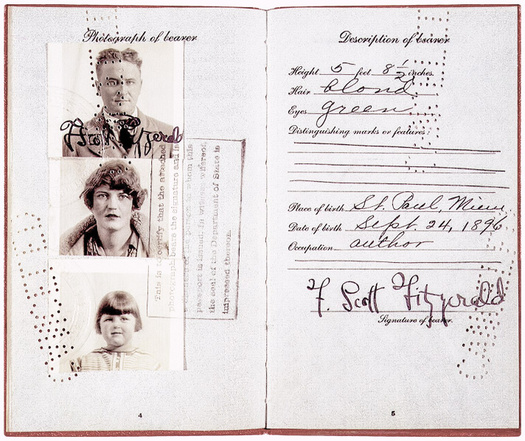 Photograph of bearer
F Scott Fitzgerald
This is to certify that the attached
photograph bears the signature and is
a likeness of the person to whom this
passport is issued. In witness whereof,
the seal of the Department of State is
impressed thereon.
4
Description of bearer
Height 5 feet 8 1/2 inches.
Hair blond
Eyes green
Distinguishing marks or features:
Place of birth St. Paul, Minn
Date of birth Sept. 24, 1896
Occupation author
F. Scott Fitzgerald
Signature of bearer.
5